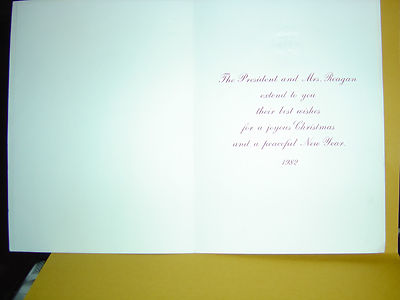 The President and Mrs. Reagan
extend to you
their best wishes
for a joyous Christmas
and a peaceful New Year.
1982